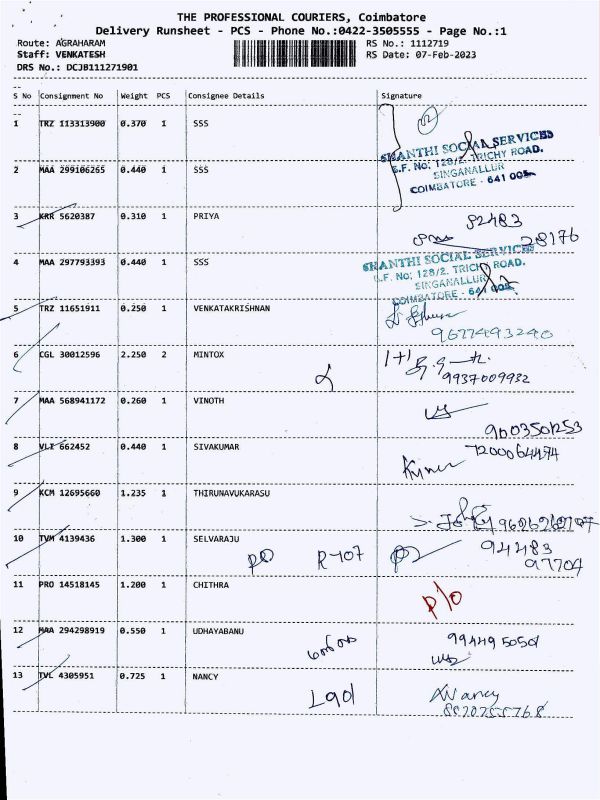 THE PROFESSIONAL COURIERS, Coimbatore
Delivery Runsheet - PCS - Phone No.:0422-3505555 - Page No.:1
Route: AGRAHARAM RS No.: 1112719
Staff: VENKATESH RS Date: 07-Feb-2023
DRS No.: DCJB111271901
S No Consignment No Weight PCS Consignee Details Signature
1 TRZ 113313900 0.370 1 SSS
SHANTHI SOCIAL SERVICES
S.F. No: 128/2. TRICHY ROAD.
SINGANALLUR
COIMBATORE - 641 005
2 MAA 299106265 0.440 1 SSS
3 KRR 5620387 0.310 1 PRIYA 82483
28176
4 MAA 297793393 0.440 1 SSS
SHANTHI SOCIAL SERVICES
S.F. No: 128/2. TRICHY ROAD.
SINGANALLUR
COIMBATORE - 641 005
5 TRZ 11651911 0.250 1 VENKATAKRISHNAN
9677493240
6 CGL 30012596 2.250 2 MINTOX 1+1
9937009932
7 MAA 568941172 0.260 1 VINOTH
9003501253
8 VLI 662452 0.440 1 SIVAKUMAR 7200064474
Kumar
9 KCM 12695660 1.235 1 THIRUNAVUKARASU
10 TVM 4139436 1.300 1 SELVARAJU 94483
R407 97704
11 PRO 14518145 1.200 1 CHITHRA
P/o
12 MAA 294298919 0.550 1 UDHAYABANU 9944950501
13 TVL 4305951 0.725 1 NANCY
Nancy